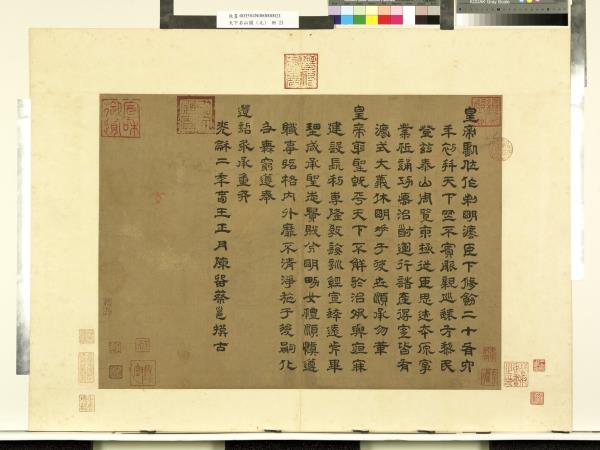 天下名山圖（元） 冊 21
皇帝臨位作制明法臣下脩飭二十有六
年初并天下罔不賓服親巡遠方黎民
登茲泰山周覽東極從臣思迹本原事
業祗誦功德治道運行諸產得宜皆有
法式大義休明垂于後世順承勿革
皇帝躬聖既平天下不懈於治夙興夜寐
建設長利專隆教誨訓經宣達遠近畢
理咸承聖志貴賤分明男女禮順慎遵
職事昭隔內外靡不清淨施于後嗣化
及無窮遵奉
遺詔永承重戒
光龢二年春王正月陳留蔡邕摸古